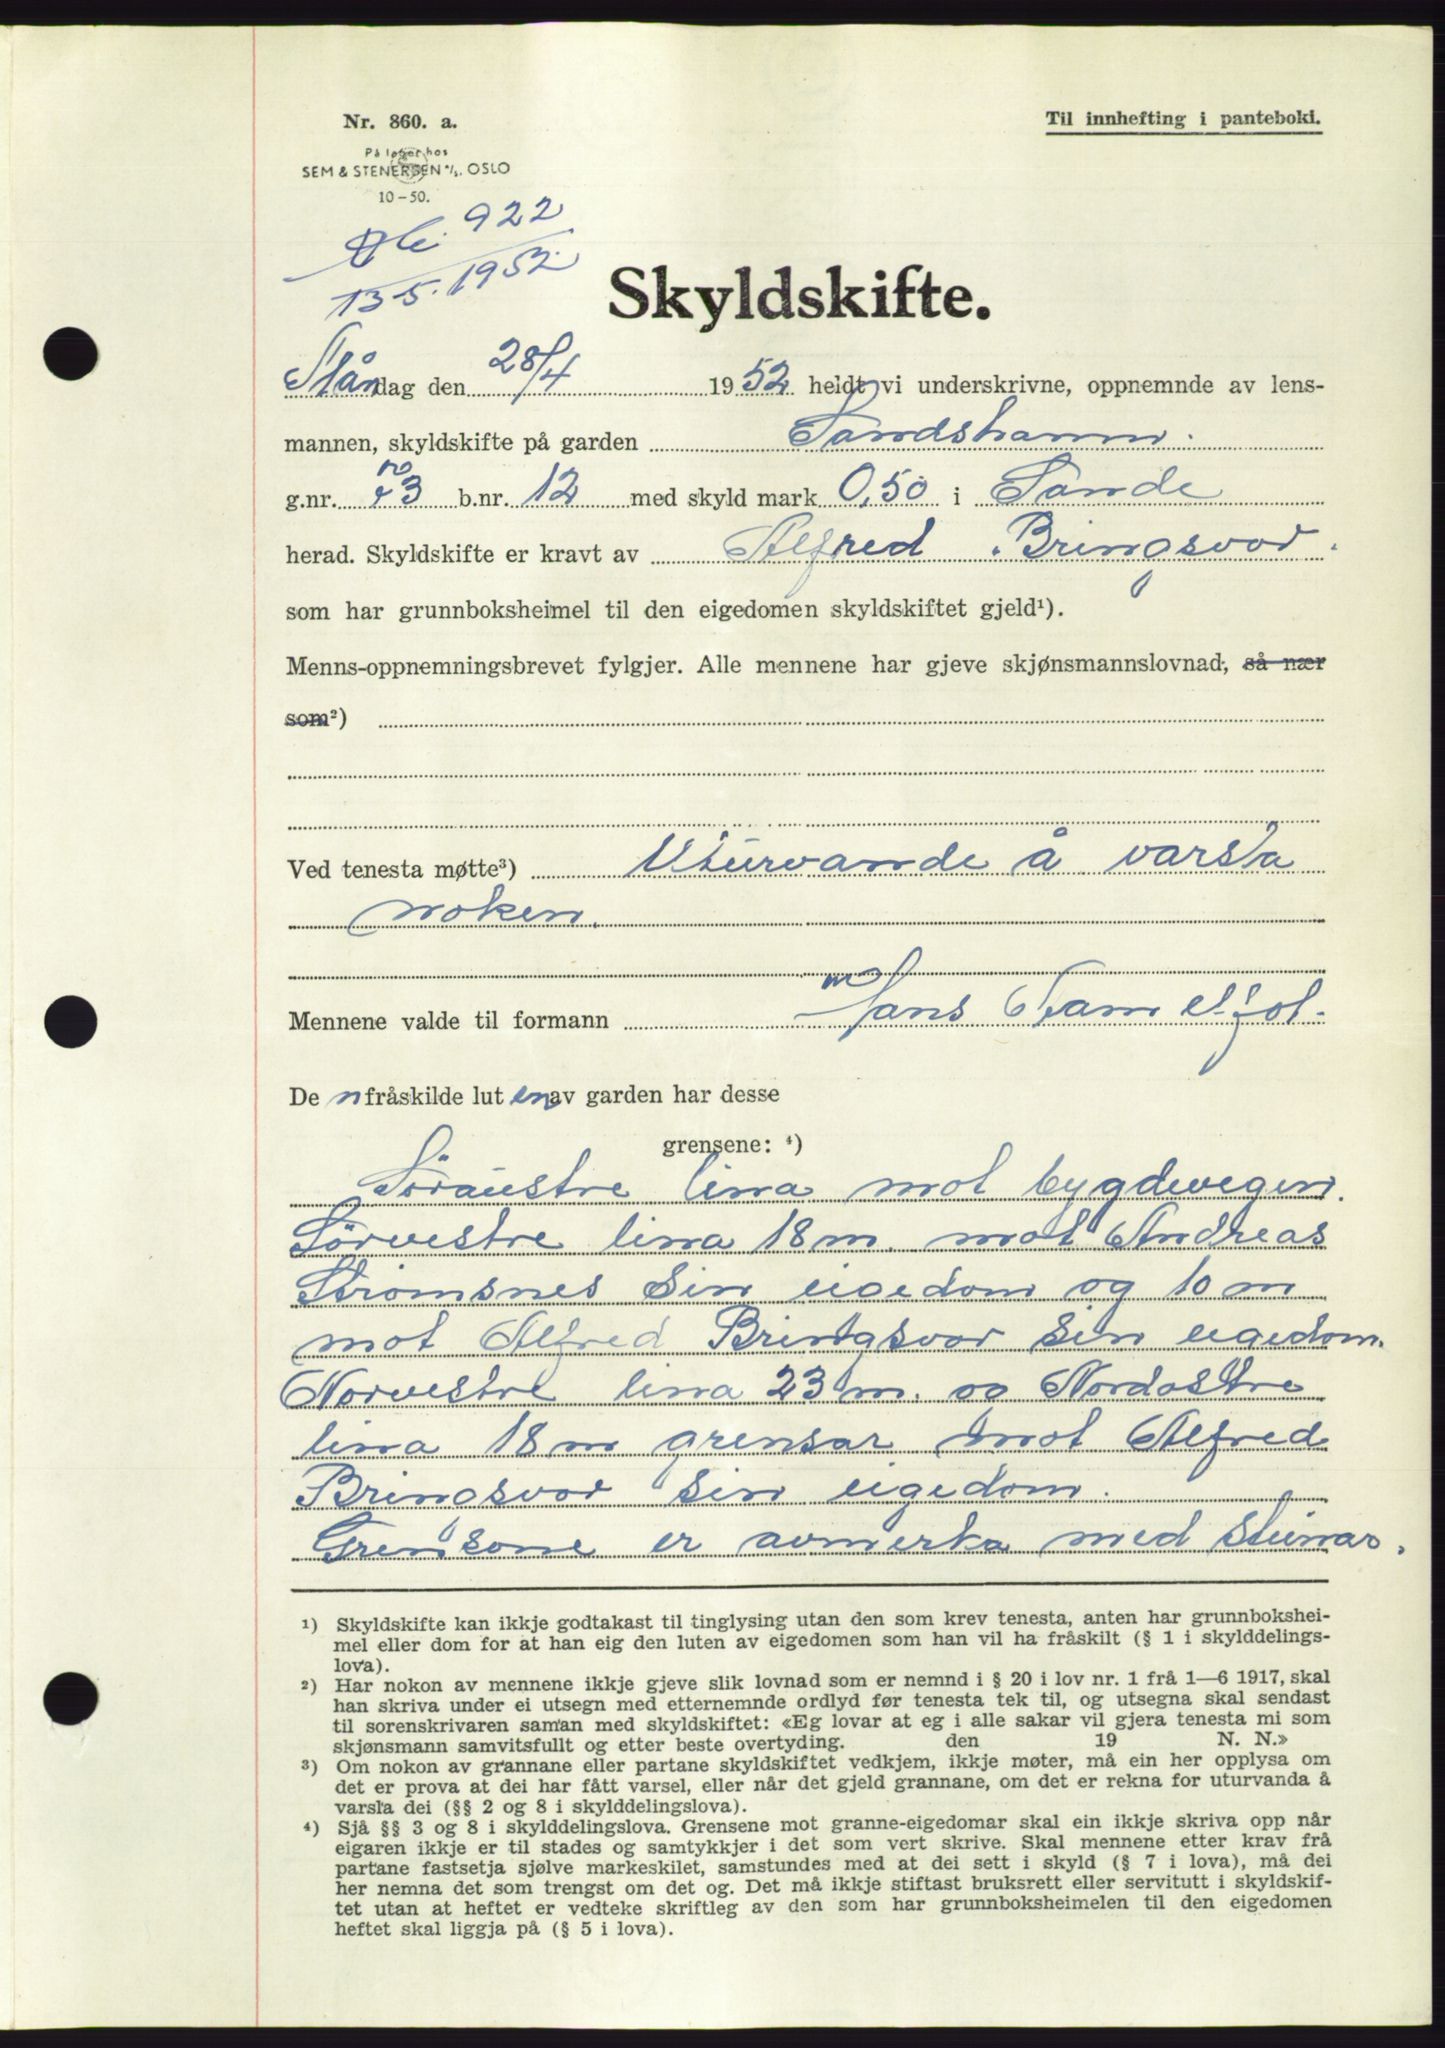 Nr. 860. a.
Til innhefting i panteboki.
På lager hos
SEM & STENERSEN A/S, OSLO
10-50.
922
13-5. 1952.
Skyldskifte.
Måndag den 28/4 1952 heldt vi underskrivne, oppnemnde av lens-
mannen, skyldskifte på garden Sandshamn.
g.nr. 3 b.nr. 12 med skyld mark 0,50 i Sande
herad. Skyldskifte er kravt av Alfred Bringsvor.
som har grunnboksheimel til den eigedomen skyldskiftet gjeld¹).
Menns-oppnemningsbrevet fylgjer. Alle mennene har gjeve skjønsmannslovnad, så nær
som²)
Ved tenesta møtte³) Uturvande å varsla
noken.
Mennene valde til formann Hans
De n fråskilde lut en av garden har desse
grensene: ⁴)
Søraustre lina mot bygdevegen.
Sørvestre lina 18 m. mot Andreas
Strømsnes sin eigedom og 10 m
mot Alfred Bringsvor sin eigedom.
Norvestre lina 23 m. og Nordøstre
lina 18 m grensar mot Alfred
Bringsvor sin eigedom.
Grensone er avmerka med steinar.
¹) Skyldskifte kan ikkje godtakast til tinglysing utan den som krev tenesta, anten har grunnbokshei-
mel eller dom for at han eig den luten av eigedomen som han vil ha fråskilt (§ 1 i skylddelings-
lova).
²) Har nokon av mennene ikkje gjeve slik lovnad som er nemnd i § 20 i lov nr. 1 frå 1—6 1917, skal
han skriva under ei utsegn med etternemnde ordlyd før tenesta tek til, og utsegna skal sendast
til sorenskrivaren saman med skyldskiftet: «Eg lovar at eg i alle sakar vil gjera tenesta mi som
skjønsmann samvitsfullt og etter beste overtyding. den 19 N. N.»
³) Om nokon av grannane eller partane skyldskiftet vedkjem, ikkje møter, må ein her opplysa om
det er prova at dei har fått varsel, eller når det gjeld grannane, om det er rekna for uturvanda å
varsla dei (§§ 2 og 8 i skylddelingslova).
⁴) Sjå §§ 3 og 8 i skylddelingslova. Grensene mot granne-eigedomar skal ein ikkje skriva opp når
eigaren ikkje er til stades og samtykkjer i det som vert skrive. Skal mennene etter krav frå
partane fastsetja sjølve markeskilet, samstundes med at dei sett i skyld (§ 7 i lova), må dei
her nemna det som trengst om det og. Det må ikkje stiftast bruksrett eller servitutt i skyldskif-
tet utan at heftet er vedteke skriftleg av den som har grunnboksheimelen til den eigedomen
heftet skal liggja på (§ 5 i lova).